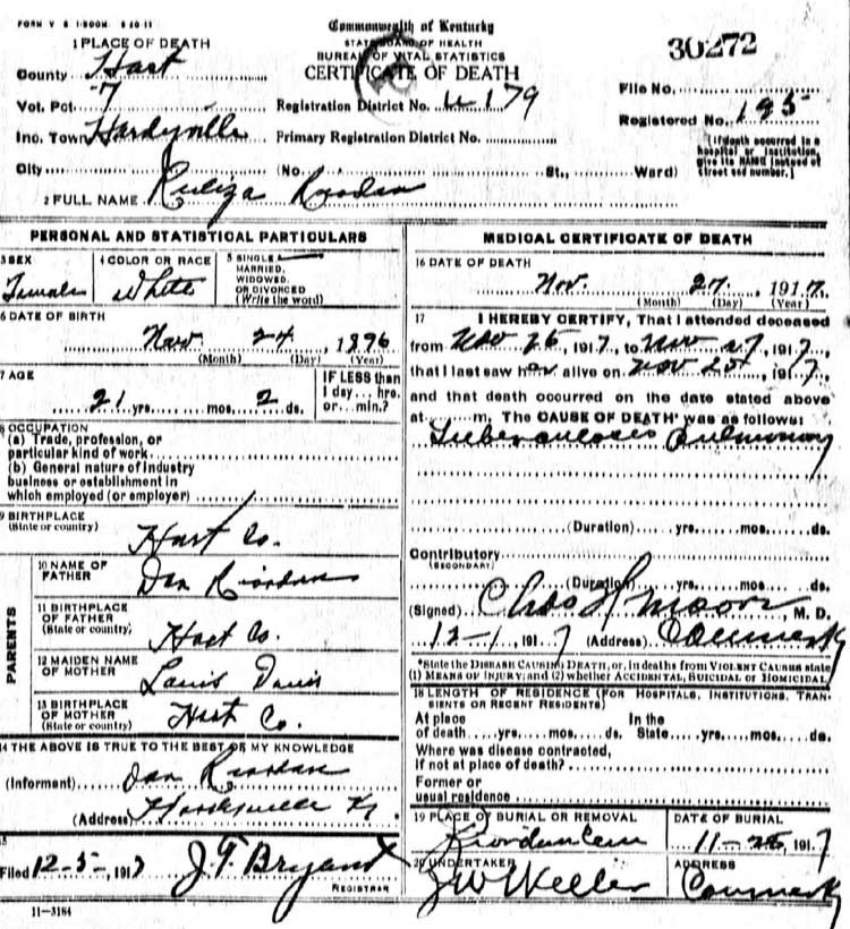 FORM V S 1-500M 8 20 11
Commonwealth of Kentucky
STATE BOARD OF HEALTH
BUREAU OF VITAL STATISTICS
CERTIFICATE OF DEATH
30272
1 PLACE OF DEATH
County Hart
Vot. Pct. 7
Registration District No. 179
File No.
Registered No. 195
Inc. Town Hardyville
Primary Registration District No.
City (No. St., Ward)
[If death occurred in a
hospital or institution,
give its NAME instead of
street and number.]
2 FULL NAME Ruliza Riordan
PERSONAL AND STATISTICAL PARTICULARS
3 SEX
Female
4 COLOR OR RACE
White
5 SINGLE
MARRIED,
WIDOWED,
OR DIVORCED
(Write the word)
6 DATE OF BIRTH
Nov. 24, 1896
(Month) (Day) (Year)
7 AGE
21 yrs. mos. 2 ds.
IF LESS than
1 day... hrs.
or... min.?
8 OCCUPATION
(a) Trade, profession, or
particular kind of work
(b) General nature of industry
business or establishment in
which employed (or employer)
9 BIRTHPLACE
(State or country)
Hart Co.
PARENTS
10 NAME OF
FATHER
Dan Riordan
11 BIRTHPLACE
OF FATHER
(State or country)
Hart Co.
12 MAIDEN NAME
OF MOTHER
Davis
13 BIRTHPLACE
OF MOTHER
(State or country)
Hart Co.
14 THE ABOVE IS TRUE TO THE BEST OF MY KNOWLEDGE
(Informant) Dan Riordan
(Address) Hardyville Ky.
15
Filed 12-5-, 1917 J. T. Bryant
REGISTRAR
11-3184
MEDICAL CERTIFICATE OF DEATH
16 DATE OF DEATH
Nov. 27, 1917
(Month) (Day) (Year)
17 I HEREBY CERTIFY, That I attended deceased
from Nov 25, 1917, to Nov 27, 1917,
that I last saw her alive on Nov 25, 1917,
and that death occurred on the date stated above
at m, The CAUSE OF DEATH* was as follows:
Tuberculosis Pulmonary
(Duration) yrs. mos. ds.
Contributory
(SECONDARY)
(Duration) yrs. mos. ds.
(Signed) Chas H Moore, M. D.
12-1, 1917 (Address) Canmer Ky
*State the DISEASE CAUSING DEATH, or, in deaths from VIOLENT CAUSES state
(1) MEANS OF INJURY; and (2) whether ACCIDENTAL, SUICIDAL or HOMICIDAL
18 LENGTH OF RESIDENCE (FOR HOSPITALS, INSTITUTIONS, TRAN-
SIENTS OR RECENT RESIDENTS)
At place
of death yrs. mos. ds.
In the
State yrs. mos. ds.
Where was disease contracted,
If not at place of death?
Former or
usual residence
19 PLACE OF BURIAL OR REMOVAL
Riordan Cem
DATE OF BURIAL
11-28, 1917
20 UNDERTAKER
J W Weller
ADDRESS
Canmer Ky